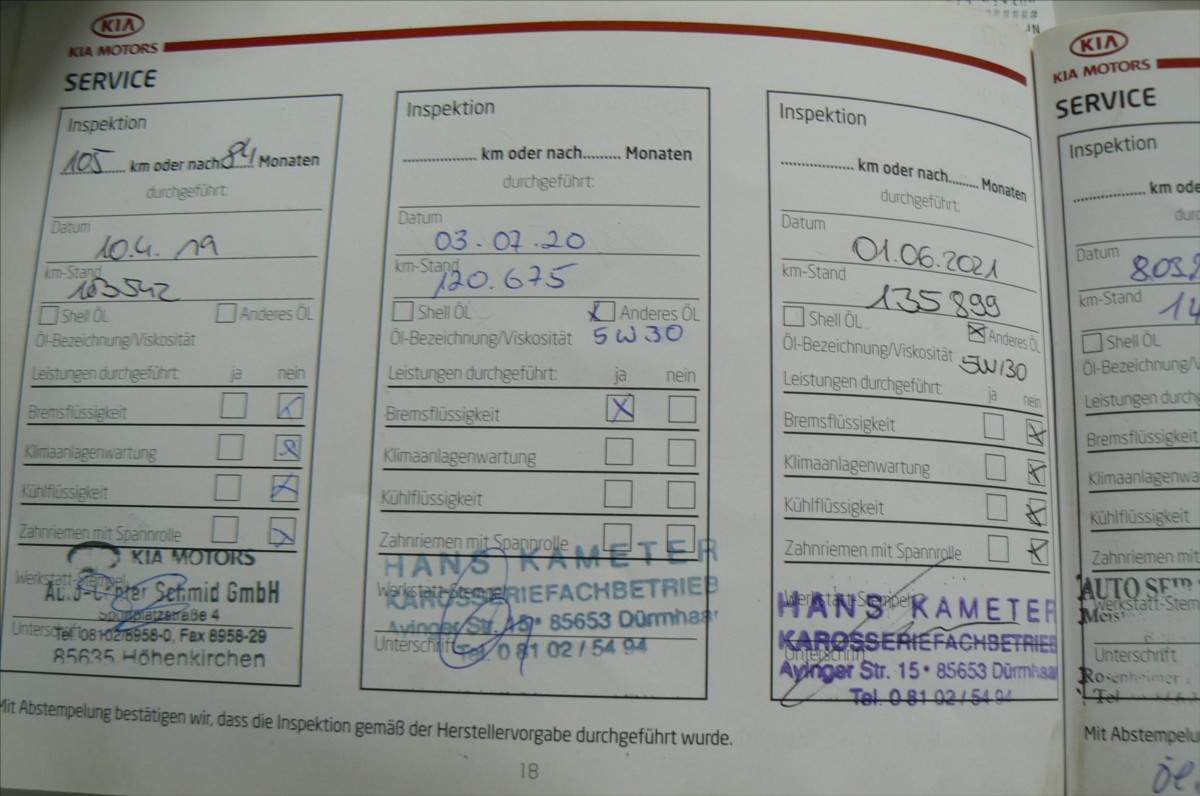 KIA
KIA MOTORS
SERVICE
Inspektion
105 km oder nach 84 Monaten
durchgeführt:
Datum
10.4. 19
km-Stand
103542
Shell ÖL Anderes ÖL
Öl-Bezeichnung/Viskosität
Leistungen durchgeführt: ja nein
Bremsflüssigkeit
Klimaanlagenwartung
Kühlflüssigkeit
Zahnriemen mit Spannrolle
KIA MOTORS
Werkstatt-Stempel
Schmid GmbH
Unterschrift
Tel. 08102/8958-0, Fax 8958-29
85635 Höhenkirchen
Inspektion
km oder nach Monaten
durchgeführt:
Datum
03.07.20
km-Stand
120.675
Shell ÖL Anderes ÖL
Öl-Bezeichnung/Viskosität 5W30
Leistungen durchgeführt: ja nein
Bremsflüssigkeit
Klimaanlagenwartung
Kühlflüssigkeit
Zahnriemen mit Spannrolle
HANS KAMETER
Werkstatt-Stempel
KAROSSERIEFACHBETRIEB
Ayinger Str. 15 • 85653 Dürrnhaar
Unterschrift
Tel. 0 81 02 / 54 94
Inspektion
km oder nach Monaten
durchgeführt:
Datum
01.06.2021
km-Stand
135899
Shell ÖL Anderes ÖL
Öl-Bezeichnung/Viskosität 5W30
Leistungen durchgeführt: ja nein
Bremsflüssigkeit
Klimaanlagenwartung
Kühlflüssigkeit
Zahnriemen mit Spannrolle
Werkstatt-Stempel
HANS KAMETER
KAROSSERIEFACHBETRIEB
Unterschrift
Ayinger Str. 15 • 85653 Dürrnhaa
Tel. 0 81 02 / 54 94
Mit Abstempelung bestätigen wir, dass die Inspektion gemäß der Herstellervorgabe durchgeführt wurde.
18
KIA
KIA MOTORS
SERVICE
Inspektion
km ode
durc
Datum
8.03.2
km-Stand
14
Shell ÖL
Öl-Bezeichnung/V
Leistungen durchg
Bremsflüssigkeit
Klimaanlagenwa
Kühlflüssigkeit
Zahnriemen mit
AUTO
Werkstatt-Stem
Meist
Unterschrift
Rosenheimer
Tel
Mit Abstempelu
Öl